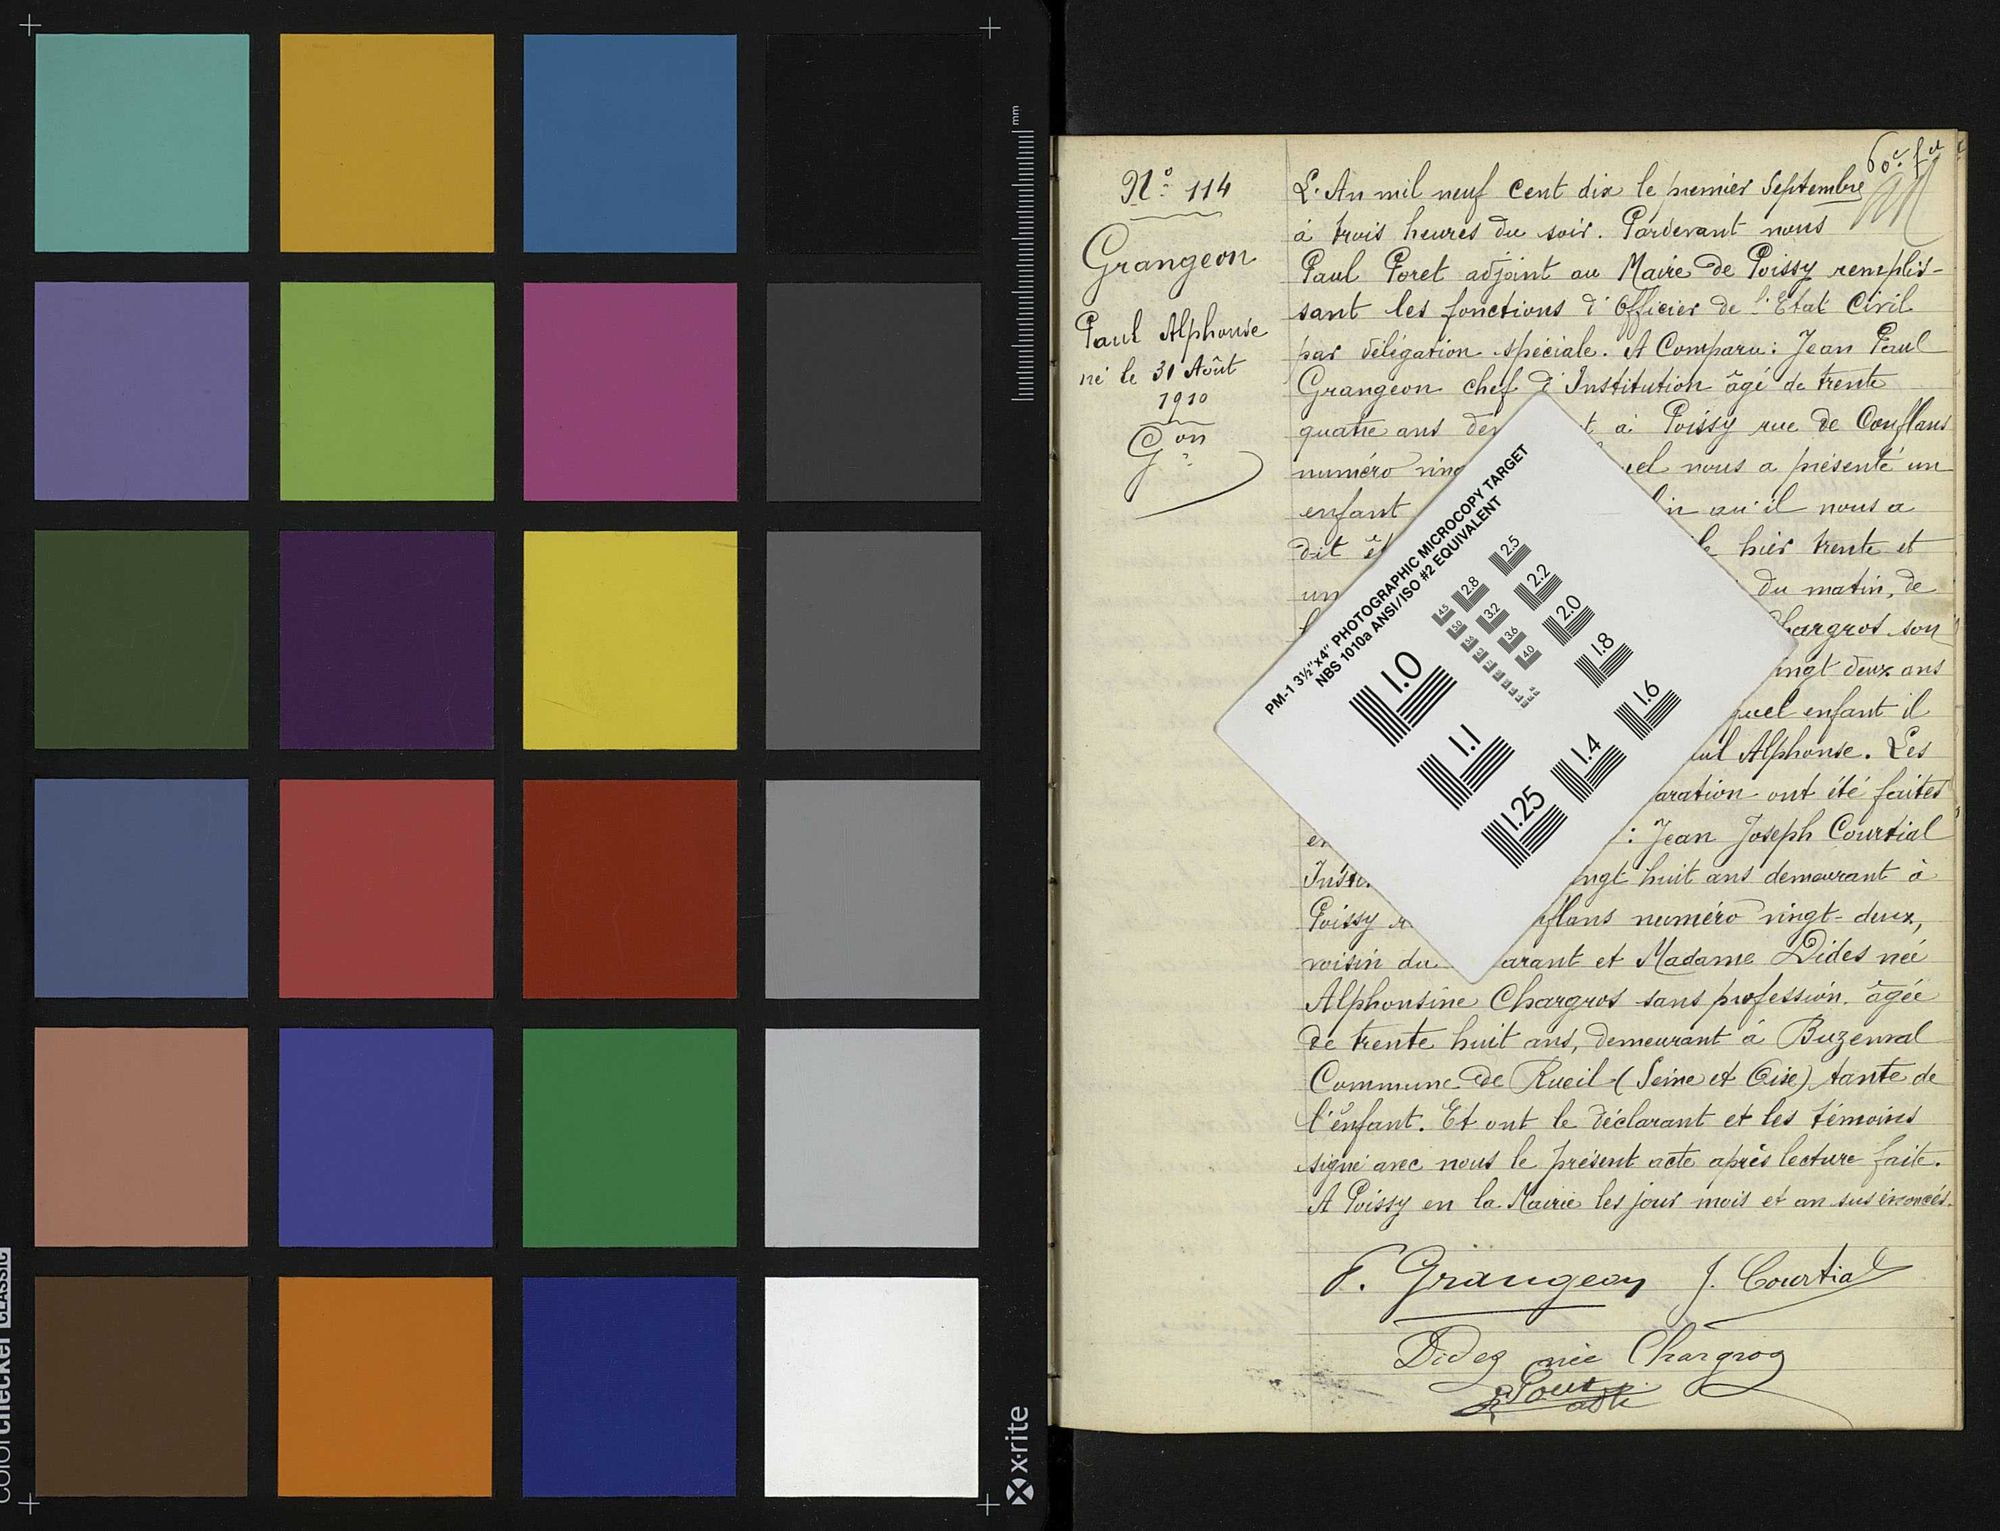 mm
colorchecker CLASSIC
x-rite
60e ft
N° 114
Grangeon
Paul Alphonse
né le 31 Août
1910
Gon
L'An mil neuf cent dix le premier Septembre
à trois heures du soir. Pardevant nous
Paul Poret adjoint au Maire de Poissy remplis-
sant les fonctions d'Officier de l'Etat Civil
par délégation spéciale. A Comparu: Jean Paul
Grangeon chef d'Institution âgé de trente
quatre ans à Poissy rue de Conflans
numéro nous a présenté un
enfant qu'il nous a
dit hier trente et
un du matin, de
Chargros son
deux ans
enfant il
Alphonse. Les
ont été faites
: Jean Joseph Courtial
huit ans demeurant à
Poissy numéro vingt-deux,
voisin du et Madame Dides née
Alphonsine Chargros sans profession, âgée
de trente huit ans, demeurant à Buzenval
Commune de Rueil (Seine et Oise) tante de
l'enfant. Et ont le déclarant et les témoins
signé avec nous le présent acte après lecture faite.
A Poissy en la Mairie les jour mois et an sus énoncés.
P. Grangeon J. Courtial
Didez née Chargros
PM-1 3½"x4" PHOTOGRAPHIC MICROCOPY TARGET
NBS 1010a ANSI/ISO #2 EQUIVALENT
1.0
1.1
1.25
1.4
1.6
1.8
2.0
2.2
2.5
2.8
3.2
3.6
4.0
4.5
5.0
5.6